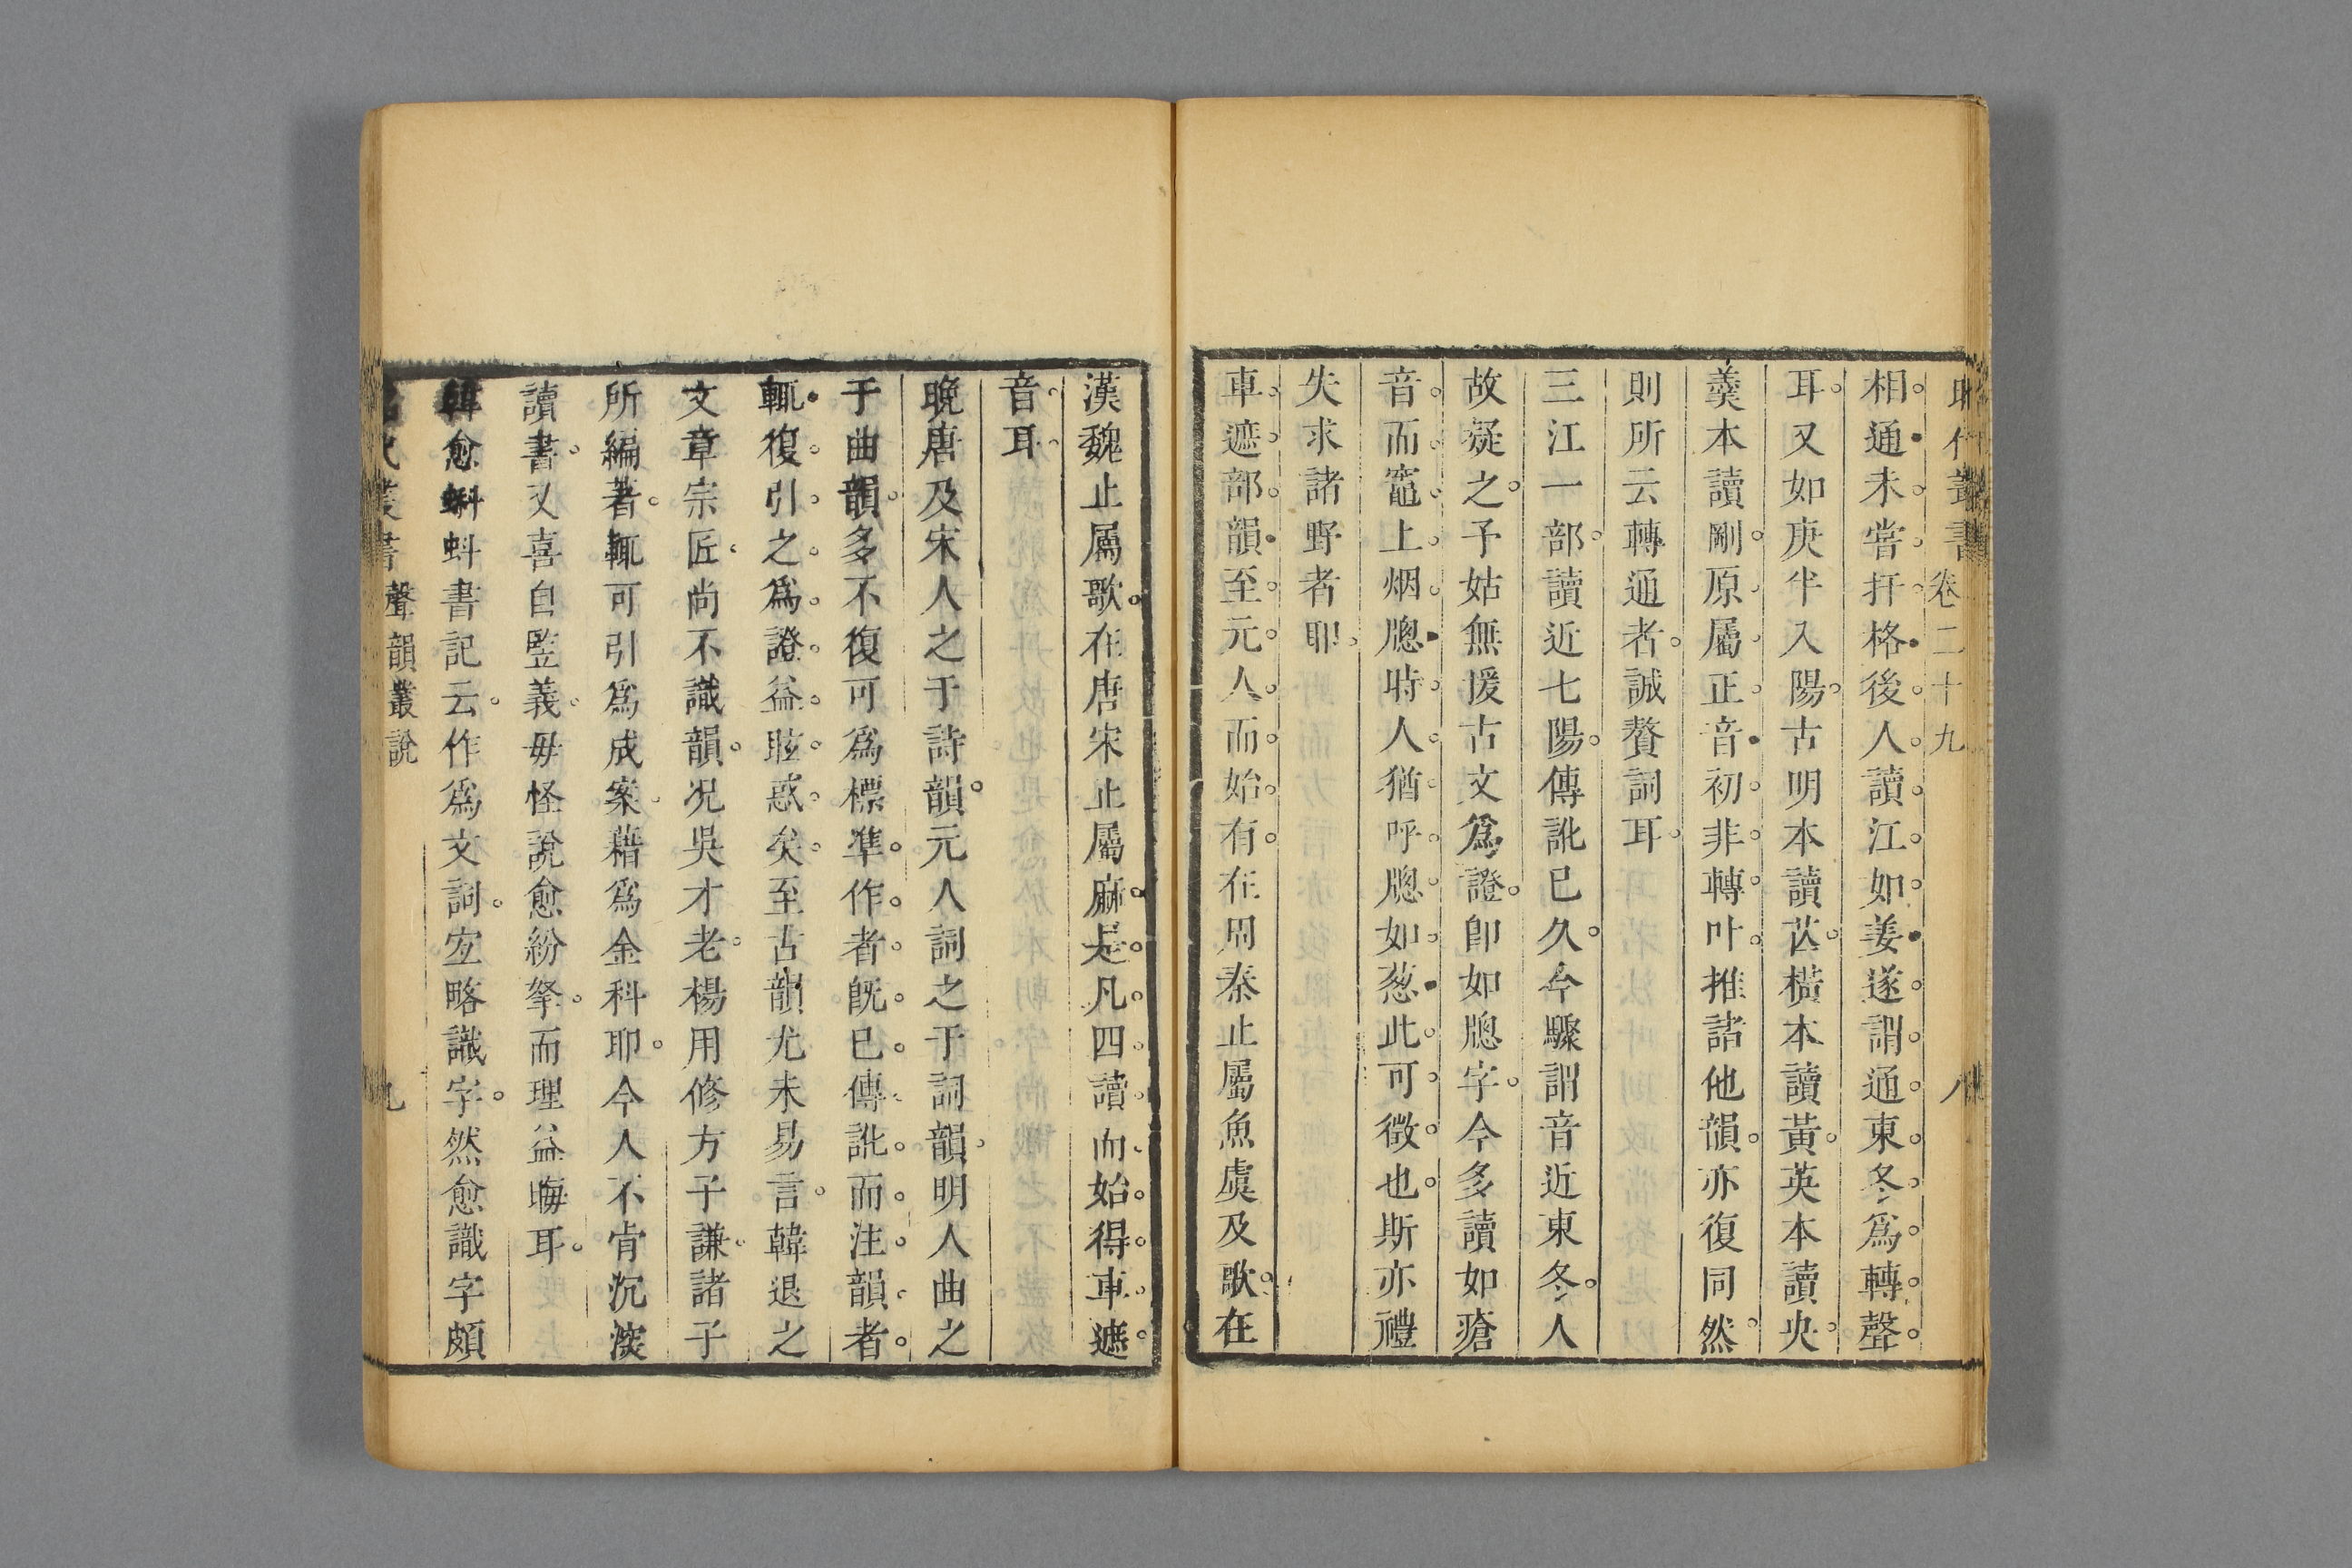 昭代叢書 卷二十九 八
相通未嘗扞格後人讀江如姜遂謂通東冬爲轉聲
耳又如庚半入陽古明本讀芒橫本讀黃英本讀央
羹本讀剛原屬正音初非轉叶推諸他韻亦復同然
則所云轉通者誠贅詞耳
三江一部讀近七陽傳訛已久今驟謂音近東冬人
故疑之予姑無援古文爲證卽如牕字今多讀如瘡
音而竈上烟牕時人猶呼牕如葱此可徵也斯亦禮
失求諸野者耶
車遮部韻至元人而始有在周秦止屬魚虞及歌在
漢魏止屬歌在唐宋止屬麻是凡四讀而始得車遮
音耳
晚唐及宋人之于詩韻元人詞之于詞韻明人曲之
于曲韻多不復可爲標準作者旣已傳訛而注韻者
輒復引之爲證益眩惑矣至古韻尤未易言韓退之
文章宗匠尚不識韻况吳才老楊用修方子謙諸子
所編著輒可引爲成案藉爲金科耶今人不肯沉深
讀書又喜自監義毋怪說愈紛拏而理益晦耳
韓愈蝌蚪書記云作爲文詞宜略識字然愈識字頗
昭代叢書 聲韻叢說 九